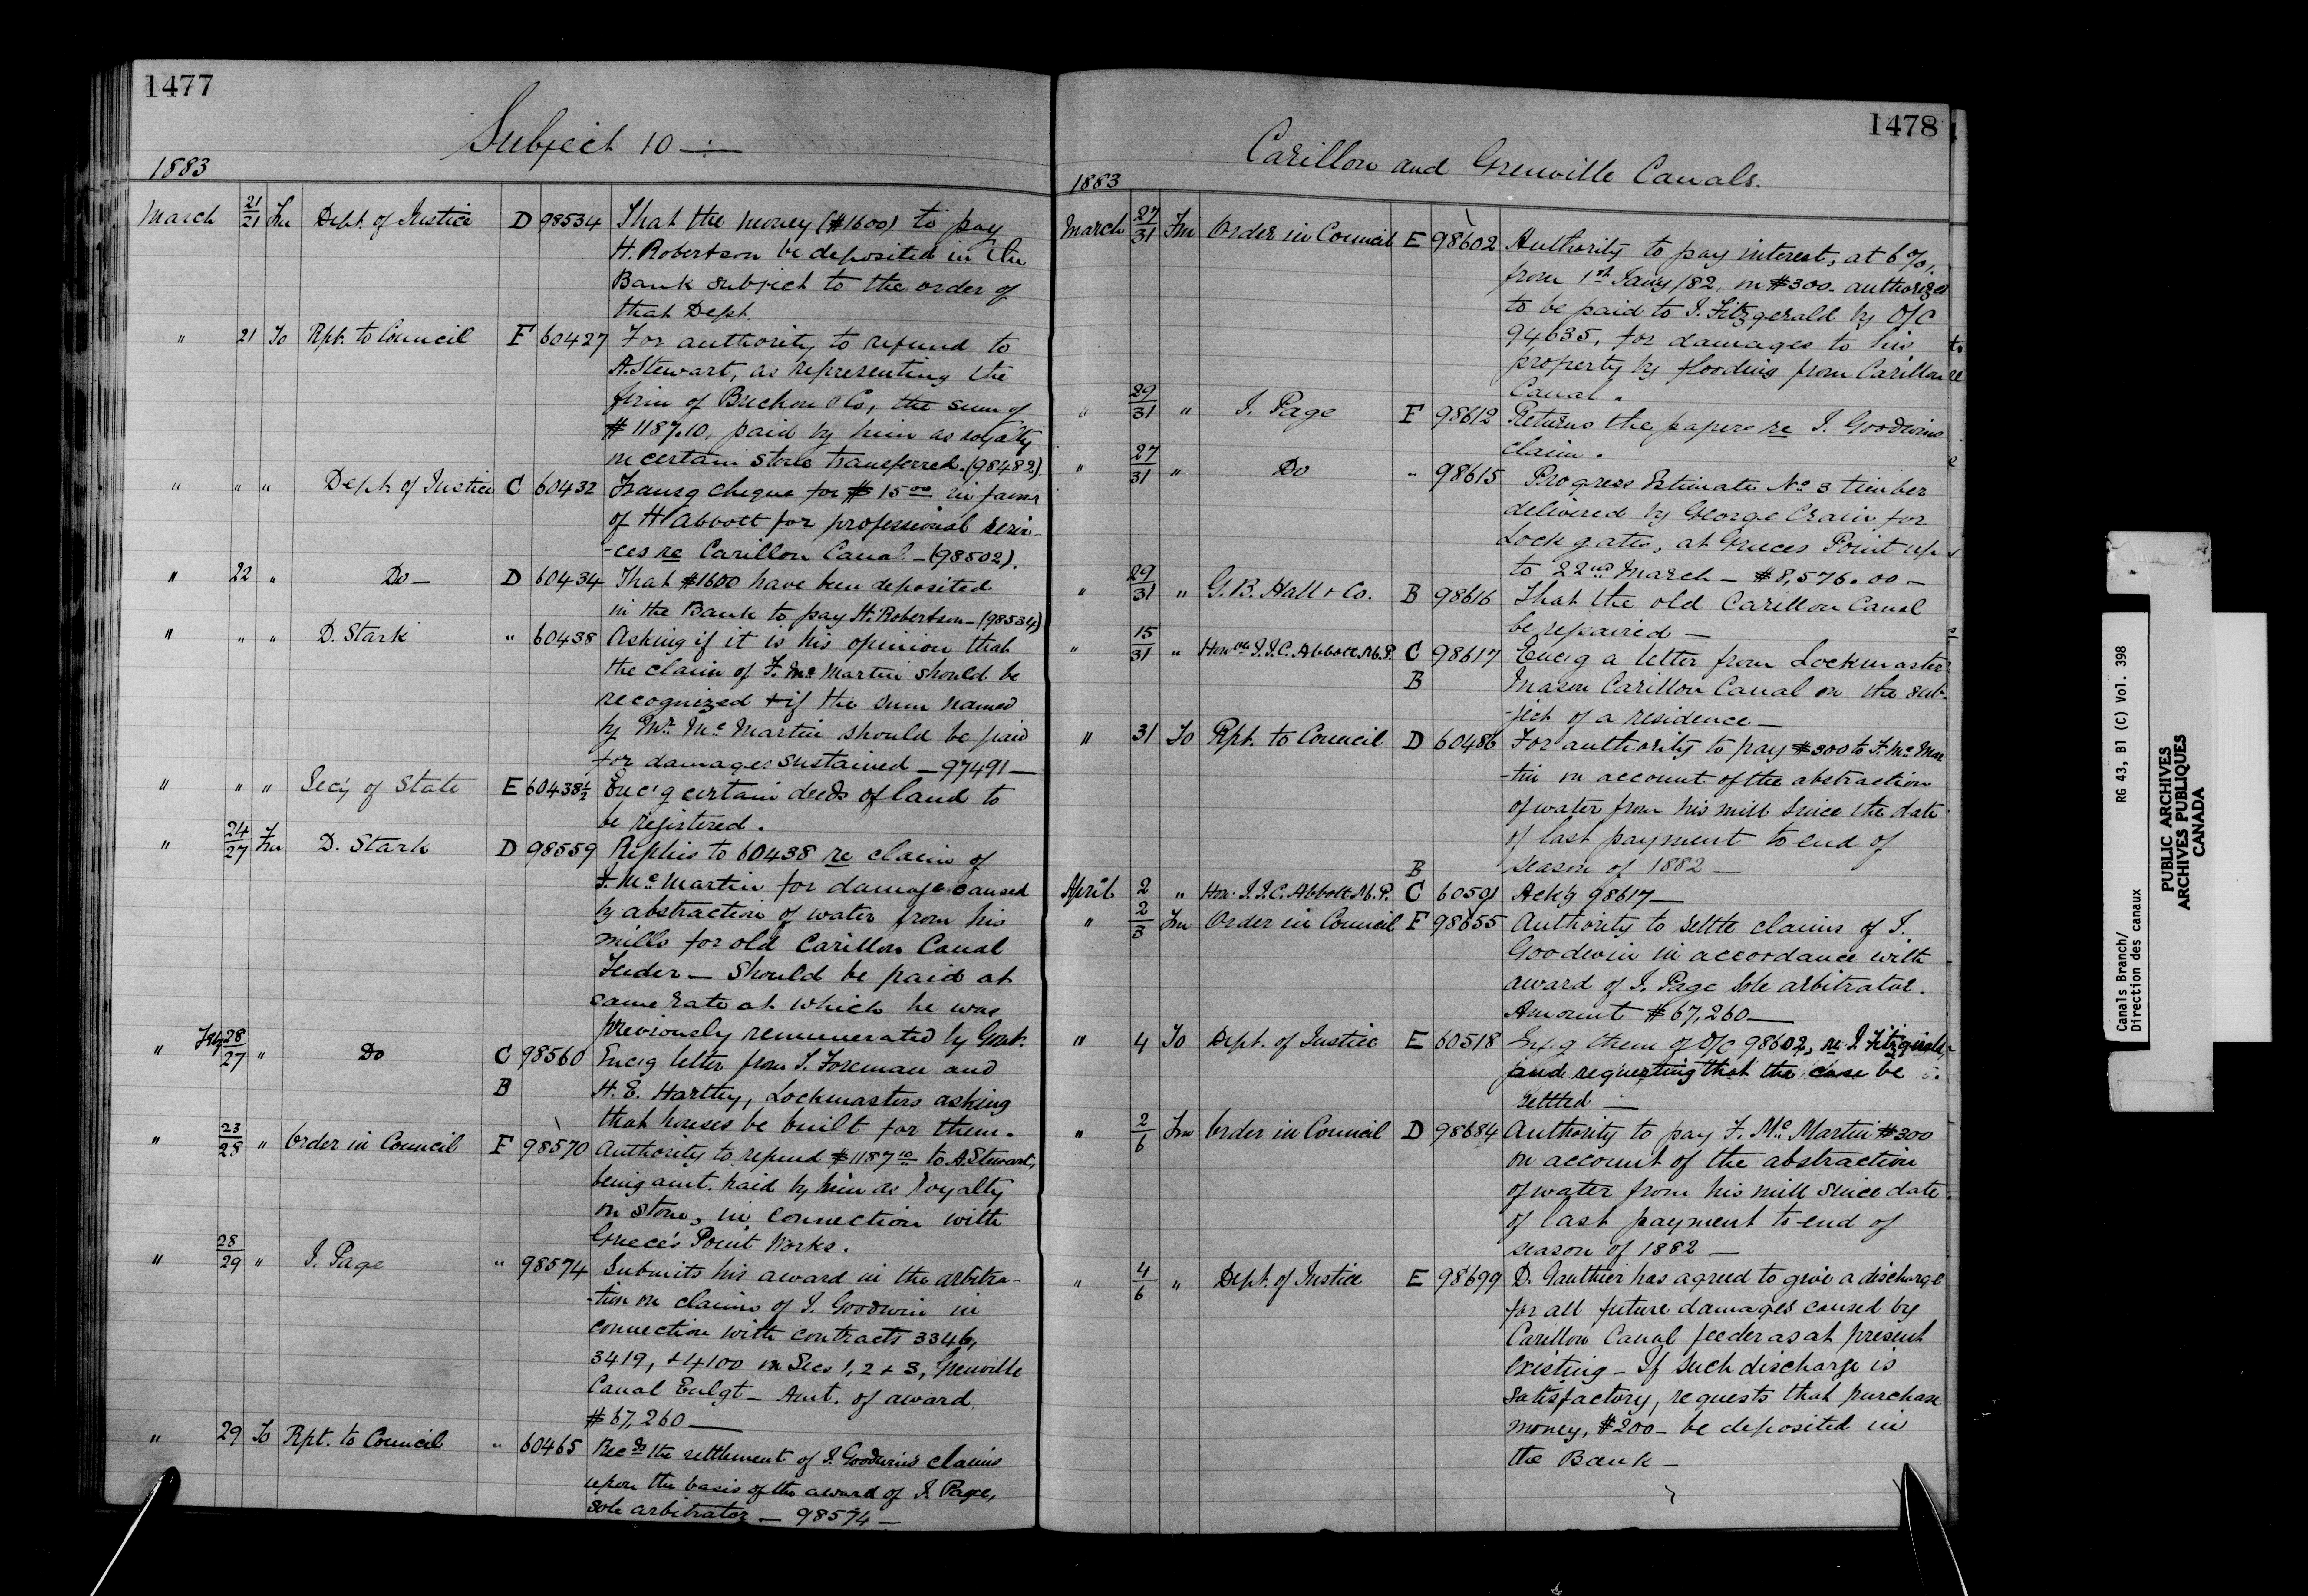 1477
Subject 10 —:—
1883
March 21/21 Fm Dept. of Justice D 98534 That the money ($1600) to pay
H. Robertson be deposited in the
Bank subject to the order of
that Dept.
" 21 To Rpt. to Council F 60427 For authority to refund to
A. Stewart, as representing the
firm of & Co, the sum of
$1187.10, paid by him as royalty
on certain stone transferred. (98482)
" " " Dept. of Justice C 60432 Transg cheque for $15 00 in favor
of H Abbott for professional servi-
-ces re Carillon Canal - (98502).
" 22 " Do — D 60434 That $1600 have been deposited
in the Bank to pay H. Robertson - (98534)
" " " D. Stark " 60438 Asking if it is his opinion that
the claim of F. Mc Martin should be
recognized & if the sum named
by Mr. Mc Martin should be paid
for damages sustained — 97491 —
" " " Sec'y of State E 60438½ Enc'g certain deeds of land to
be registered.
" 24/27 Fm D. Stark D 98559 Replies to 60438 re claim of
F. Mc Martin for damage caused
by abstraction of water from his
mills for old Carillon Canal
Feeder — Should be paid at
same rate at which he was
previously remunerated by Govt.
" Feby 28/27 " Do C 98560 Encg letter from J. Foreman and
B H. E. Hartley, Lockmasters asking
that houses be built for them.
" 23/28 " Order in Council F 98570 Authority to refund $1187 10 to A. Stewart,
being amt. paid by him as royalty
on stone, in connection with
Greece's Point Works.
" 28/29 " J. Page " 98574 Submits his award in the arbitra-
-tion on claims of J. Goodwin in
connection with contracts 3346,
3419, & 4100 on Secs 1, 2 & 3, Grenville
Canal Enlgt — Amt. of award
$67,260 —
" 29 To Rpt. to Council " 60465 Recds the settlement of J. Goodwin's claims
upon the basis of the award of J. Page,
sole arbitrator — 98574 —
1478
Carillon and Grenville Canals.
1883
March 27/31 Fm Order in Council E 98602 Authority to pay interest, at 6%,
from 1st Jany /82, on $300 - authorized
to be paid to J. Fitzgerald by O/C
94635, for damages to his
property by flooding from Carillon
Canal.
" 29/31 " J. Page F 98612 Returns the papers re J. Goodwins
claim.
" 27/31 " Do " 98615 Progress Estimate No 3 timber
delivered by George Crain for
Lock gates, at Greeces Point up
to 22nd March — $8,576.00 —
" 29/31 " G. B. Hall & Co. B 98616 That the old Carillon Canal
be repaired —
" 15/31 " Honble J. J. C. Abbott M.P. C 98617 Encg a letter from Lockmaster
B Mason Carillon Canal on the sub-
-ject of a residence —
" 31 To Rpt. to Council D 60486 For authority to pay $300 to F. Mc Mar
-tin on account of the abstraction
of water from his mill since the date
of last payment to end of
season of 1882 —
B
April 2 " Hon. J. J. C. Abbott M.P. C 60501 Ackg 98617 —
" 2/3 Fm Order in Council F 98655 Authority to settle claims of J.
Goodwin in accordance with
award of J. Page sole arbitrator.
Amount $67,260 —
" 4 To Dept. of Justice E 60518 them of O/C 98602, re J. Fitzgerald,
and requesting that the case be
settled —
" 2/6 Fm Order in Council D 98684 Authority to pay F. Mc Martin $300
on account of the abstraction
of water from his mill since date
of last payment to end of
season of 1882 —
" 4/6 " Dept. of Justice E 98699 D. Gauthier has agreed to give a discharge
for all future damages caused by
Carillon Canal feeder as at present
existing — If such discharge is
satisfactory, requests that purchase
money, $200 - be deposited in
the Bank —
Canals Branch/
Direction des canaux
RG 43, B1 (C) Vol. 398
PUBLIC ARCHIVES
ARCHIVES PUBLIQUES
CANADA